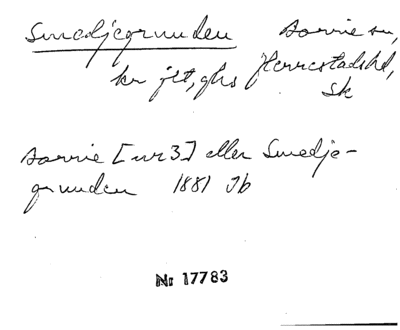 Smedjegrunden Sövrie sn,
kr jlt, ghs Herrestads hd,
Sk
Sövrie [nr 3] eller Smedje-
grunden 1881 Jb
Nr 17783